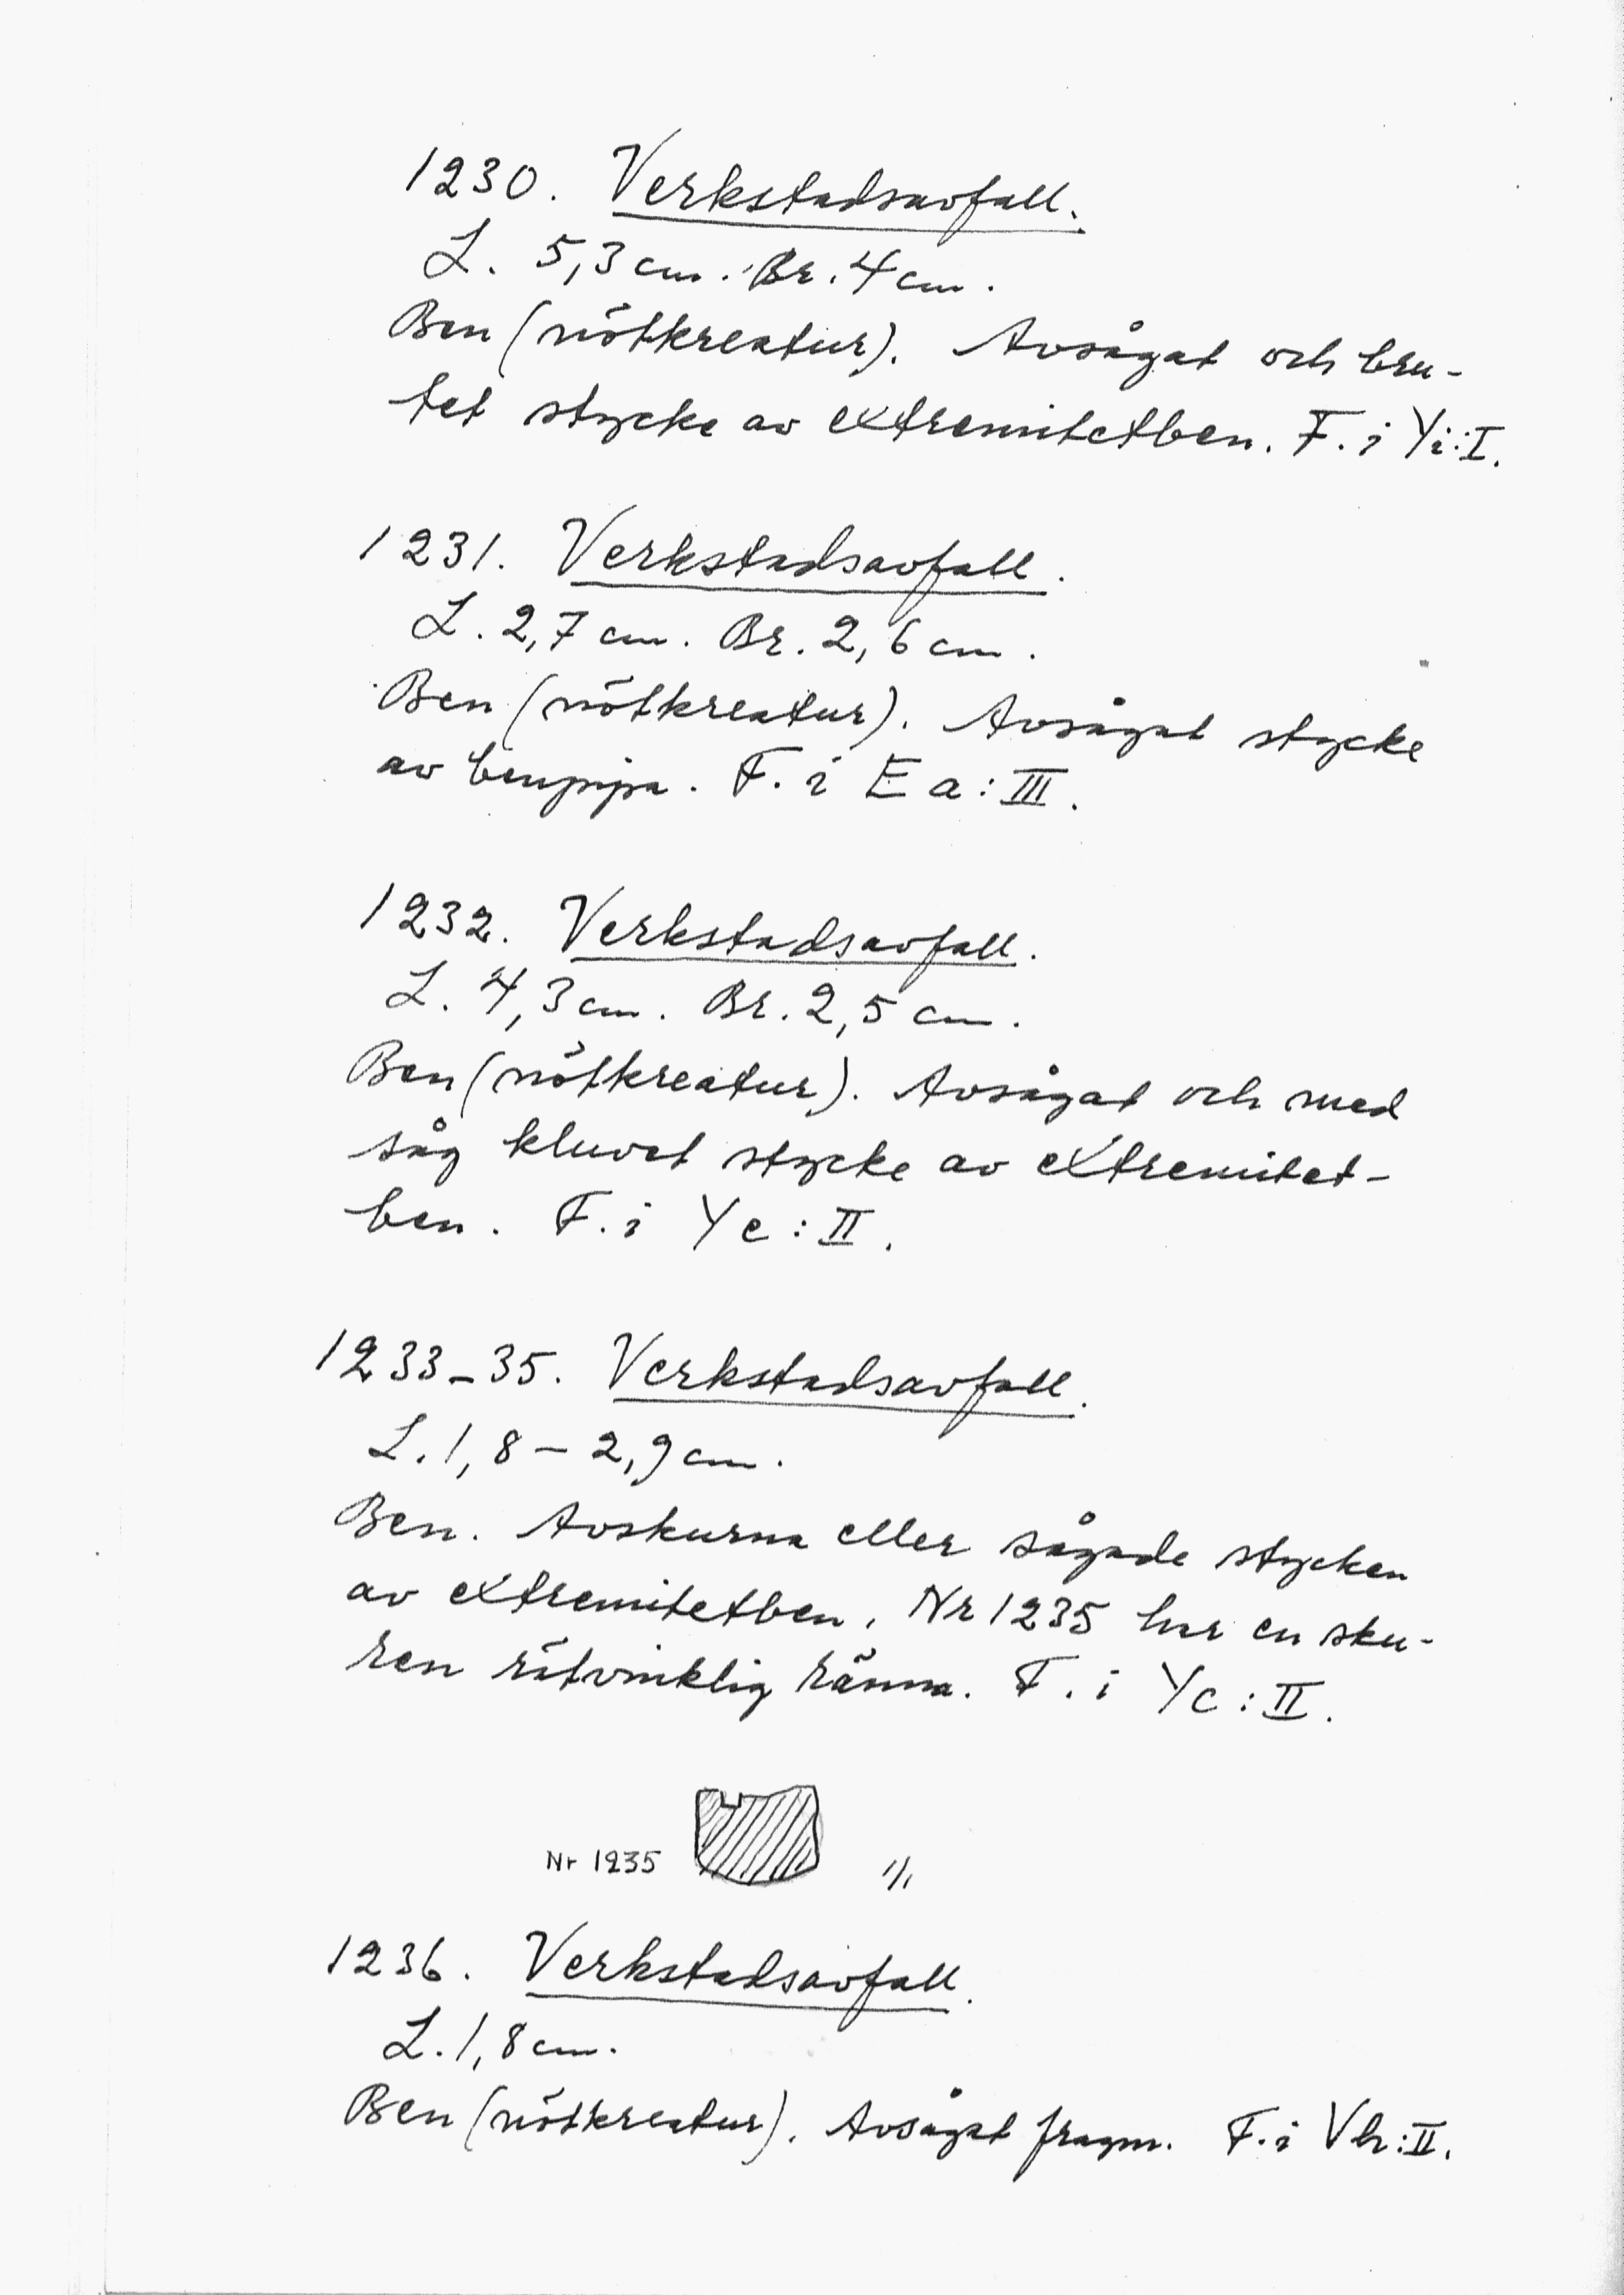 1230. Verkstadsavfall.
L. 5,3 cm. Br. 4 cm.
Ben (nötkreatur). Avsågat och bru-
tet stycke av extremitetben. F. i Yi:I.
1231. Verkstadsavfall.
L. 2,7 cm. Br. 2,6 cm.
Ben (nötkreatur). Avsågat stycke
av benpipa. F. i Ea:III.
1232. Verkstadsavfall.
L. 4,3 cm. Br. 2,5 cm.
Ben (nötkreatur). Avsågat och med
såg kluvet stycke av extremitet-
ben. F. i Ye:II.
1233-35. Verkstadsavfall.
L. 1,8 - 2,9 cm.
Ben. Avskurna eller sågade stycken
av extremitetben. Nr 1235 har en sku-
ren rätvinklig ränna. F. i Yc:II.
Nr 1235 1/1
1236. Verkstadsavfall.
L. 1,8 cm.
Ben (nötkreatur). Avsågat fragm. F. i Vh:II.